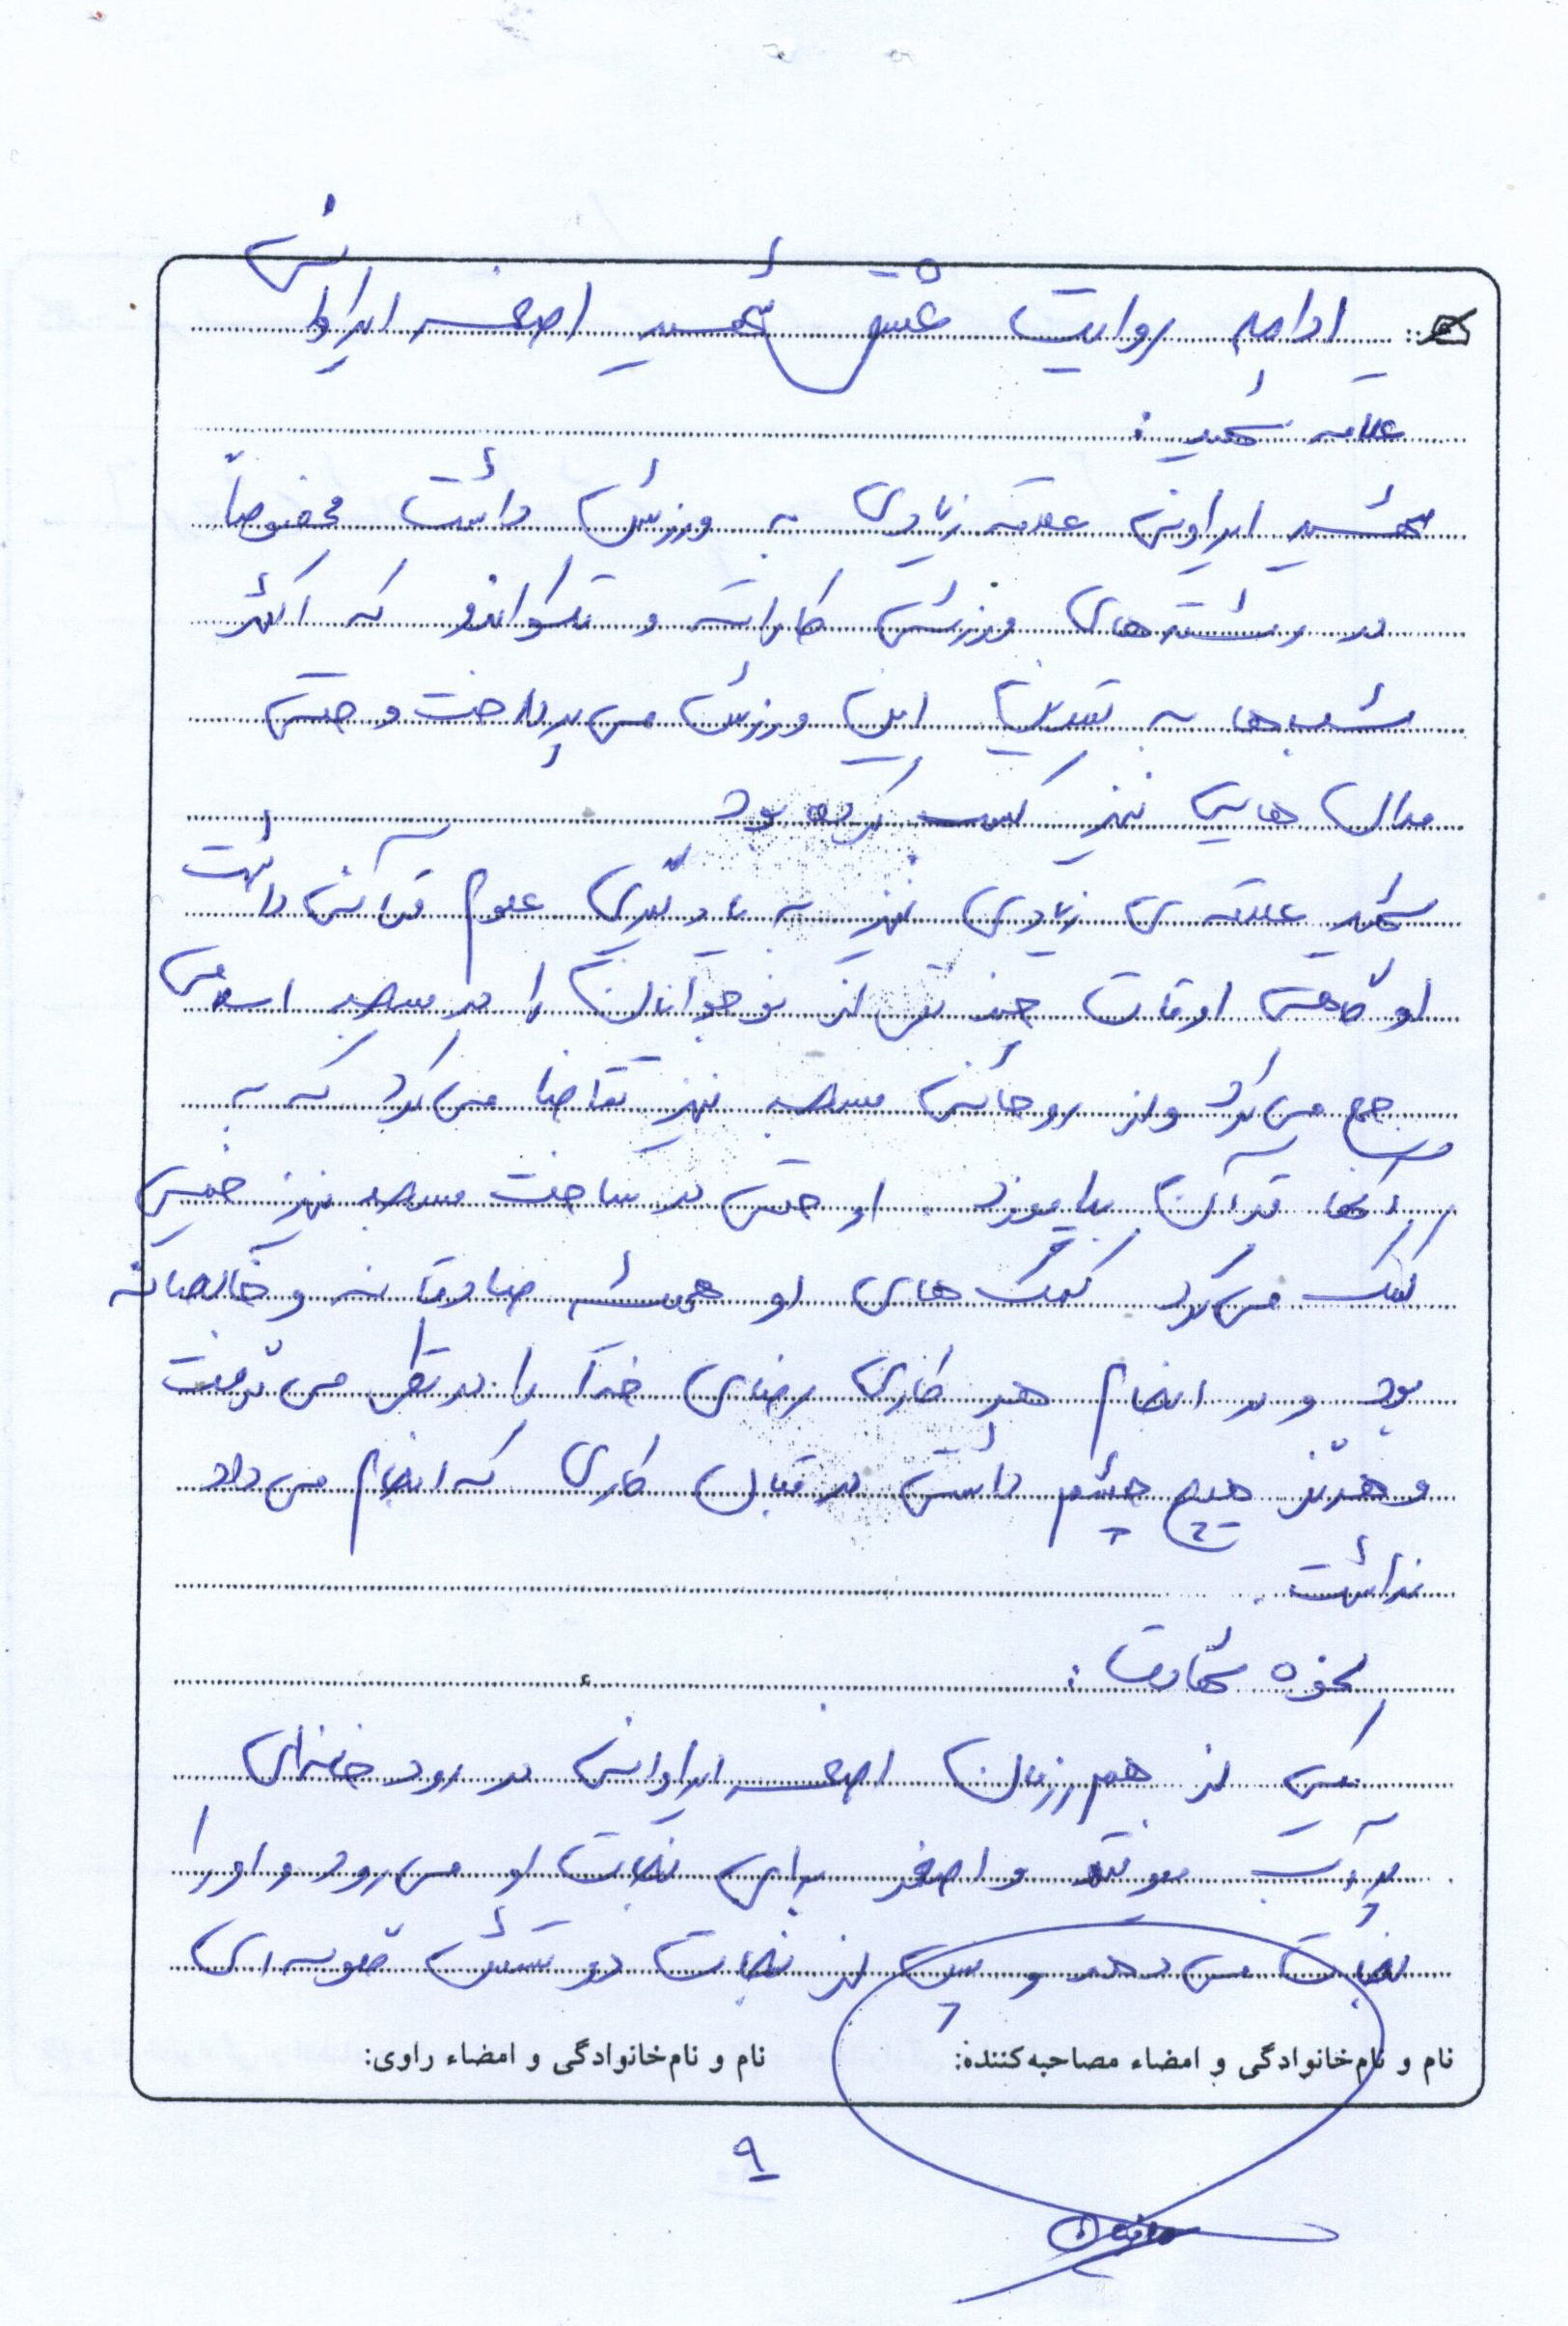 ادامه روایت عشق شهید اصغر ایراوانی
علاقه شهید :
شهید ایراونی علاقه زیادی به ورزش داشت مخصوصاً
در رشته‌های ورزشی کاراته و تکواندو که اکثر
شب‌ها به تمرین این ورزش می‌پرداخت و حتی
مدال هایی نیز کسب کرده بود
شهید علاقه‌ی زیادی نیز به یادگیری علوم قرآنی داشت
او گاهی اوقات چند تن از نوجوانان را در مسجد اسلامی
جمع می‌کرد و از روحانی مسجد نیز تقاضا می‌کرد که به
آنها قرآن بیاموزد . او حتی در ساخت مسجد نیز خیلی
کمک می‌کرد . کمک‌های او همیشه صادقانه و خالصانه
بود و در انجام هر کاری رضای خدا را در نظر می‌گرفت
و هرگز هیچ چشم داشتی در قبال کاری که انجام می‌داد
نداشت .
نحوه شهادت :
یکی از هم‌رزمان اصغر ایراوانی در رودخانه‌ای
پرآب و اصغر برای نجات او می‌رود و او را
نجات می‌دهد و پس از نجات دوستش
نام و نام‌خانوادگی و امضاء مصاحبه‌کننده:
نام و نام‌خانوادگی و امضاء راوی:
۹